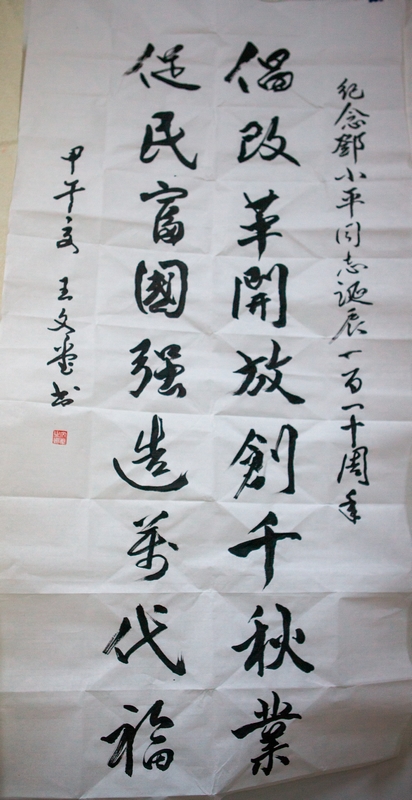 紀念鄧小平同志誕辰一百一十周年
倡改革開放創千秋業
促民富國强造萬代福
甲午夏 王文堂书